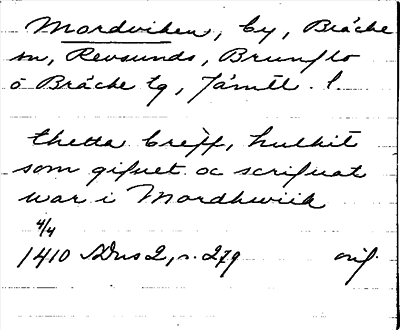 Mordviken, by, Bräcke
sn, Revsunds, Brunflo
o Bräcke tg, Jämtl. l.
thetta breff, hulkit
som gifuet oc scrifuat
war i Mordhwiik
4/4
1410 NDns 2, s. 279 orig.